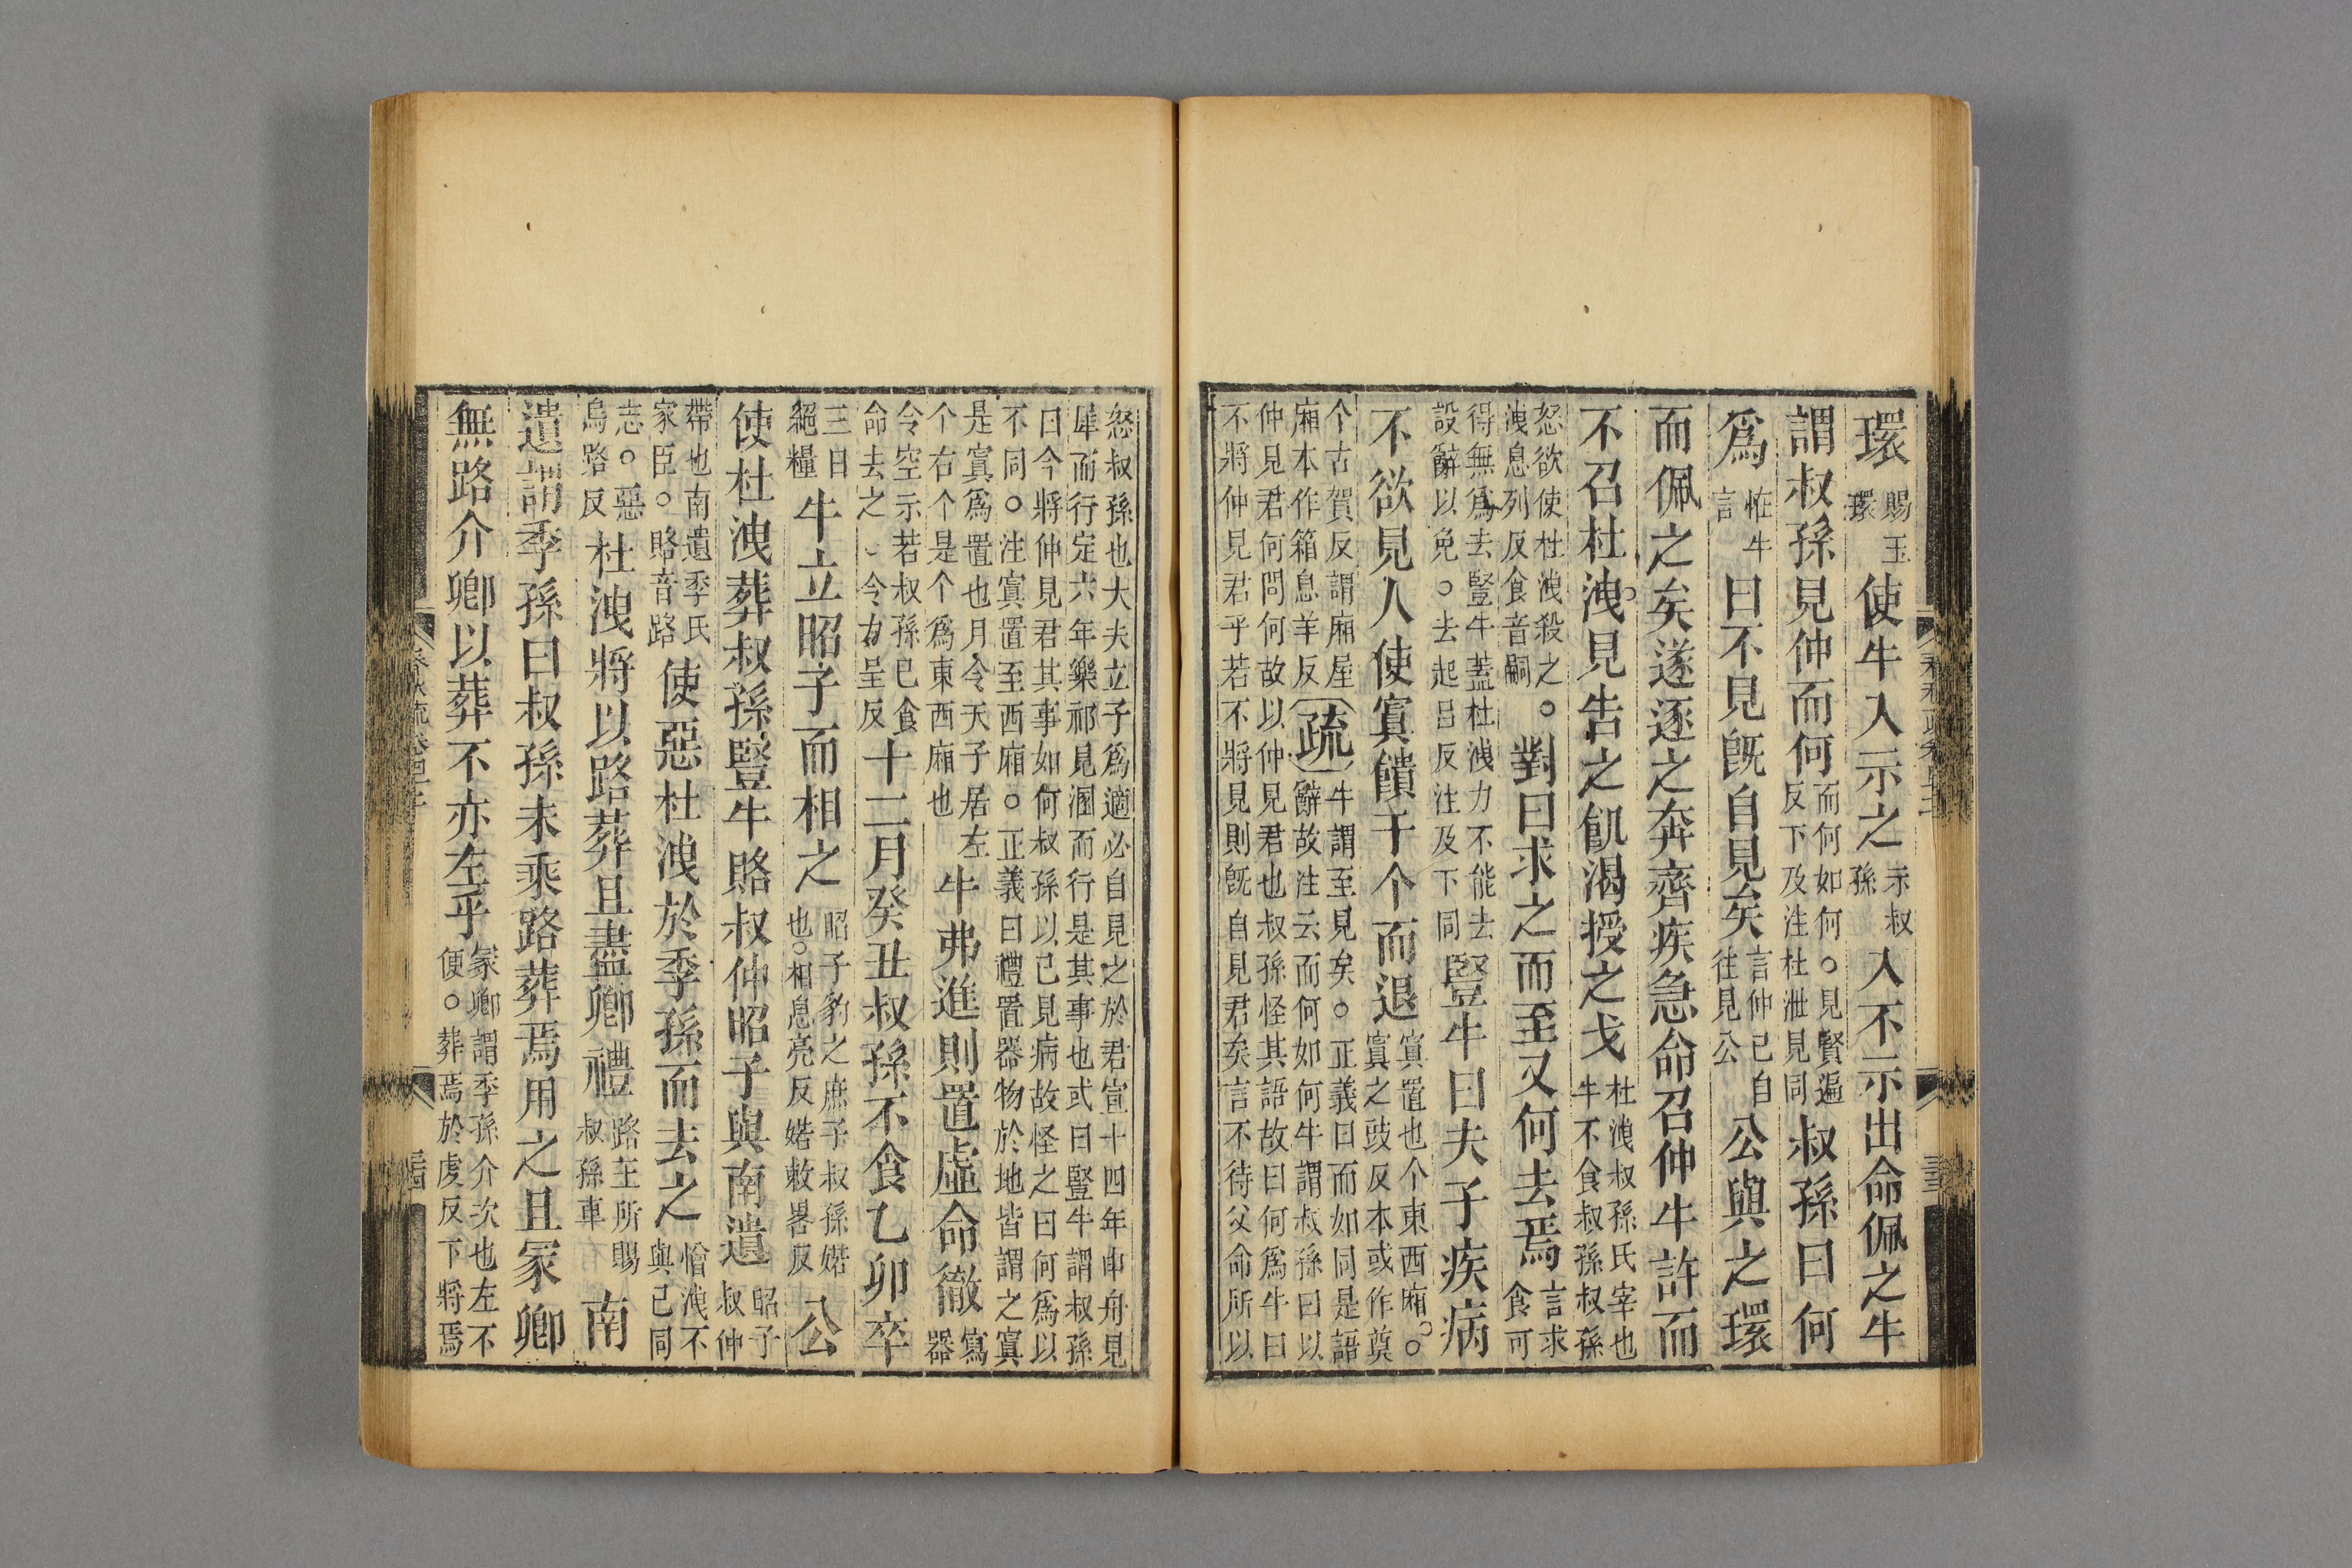 環賜玉環使牛入示之示叔孫入不示出命佩之牛
謂叔孫見仲而何而何如何○見賢遍反下及注杜泄見同叔孫曰何
爲恠牛言曰不見既自見矣言仲已自往見公公與之環
而佩之矣遂逐之奔齊疾急命召仲牛許而
不召杜洩見告之飢渴授之戈杜洩叔孫氏宰也牛不食叔孫叔孫
怒欲使杜洩殺之○洩息列反食音嗣對曰求之而至又何去焉言求食可
得無爲去豎牛蓋杜洩力不能去設辭以免○去起呂反注及下同豎牛曰夫子疾病
不欲見人使寘饋于个而退寘置也个東西廂○寘之豉反本或作奠
个古賀反謂廂屋廂本作箱息羊反疏牛謂至見矣○正義曰而如同是語辭故注云而何如何牛謂叔孫曰以
仲見君何問何故以仲見君也叔孫怪其語故曰何爲牛曰
不將仲見君乎若不將見則既自見君矣言不待父命所以
怒叔孫也大夫立子爲適必自見之於君宣十四年申舟見
犀而行定六年樂祁見溷而行是其事也或曰豎牛謂叔孫
曰今將仲見君其事如何叔孫以己見病故怪之曰何爲以
不同○注寘置至西廂○正義曰禮置器物於地皆謂之寘
是寘爲置也月令天子居左
个右个是个爲東西廂也牛弗進則置虛命徹寫器
令空示若叔孫已食命去之○令力呈反十二月癸丑叔孫不食乙卯卒
三日絕糧牛立昭子而相之昭子豹之庶子叔孫婼也○相息亮反婼敕畧反公
使杜洩葬叔孫豎牛賂叔仲昭子與南遺昭子叔仲
帶也南遺季氏家臣○賂音路使惡杜洩於季孫而去之憎洩不與己同
志○惡烏路反杜洩將以路葬且盡卿禮路王所賜叔孫車南
遺謂季孫曰叔孫未乘路葬焉用之且冢卿
無路介卿以葬不亦左乎冢卿謂季孫介次也左不便○葬焉於虔反下將焉